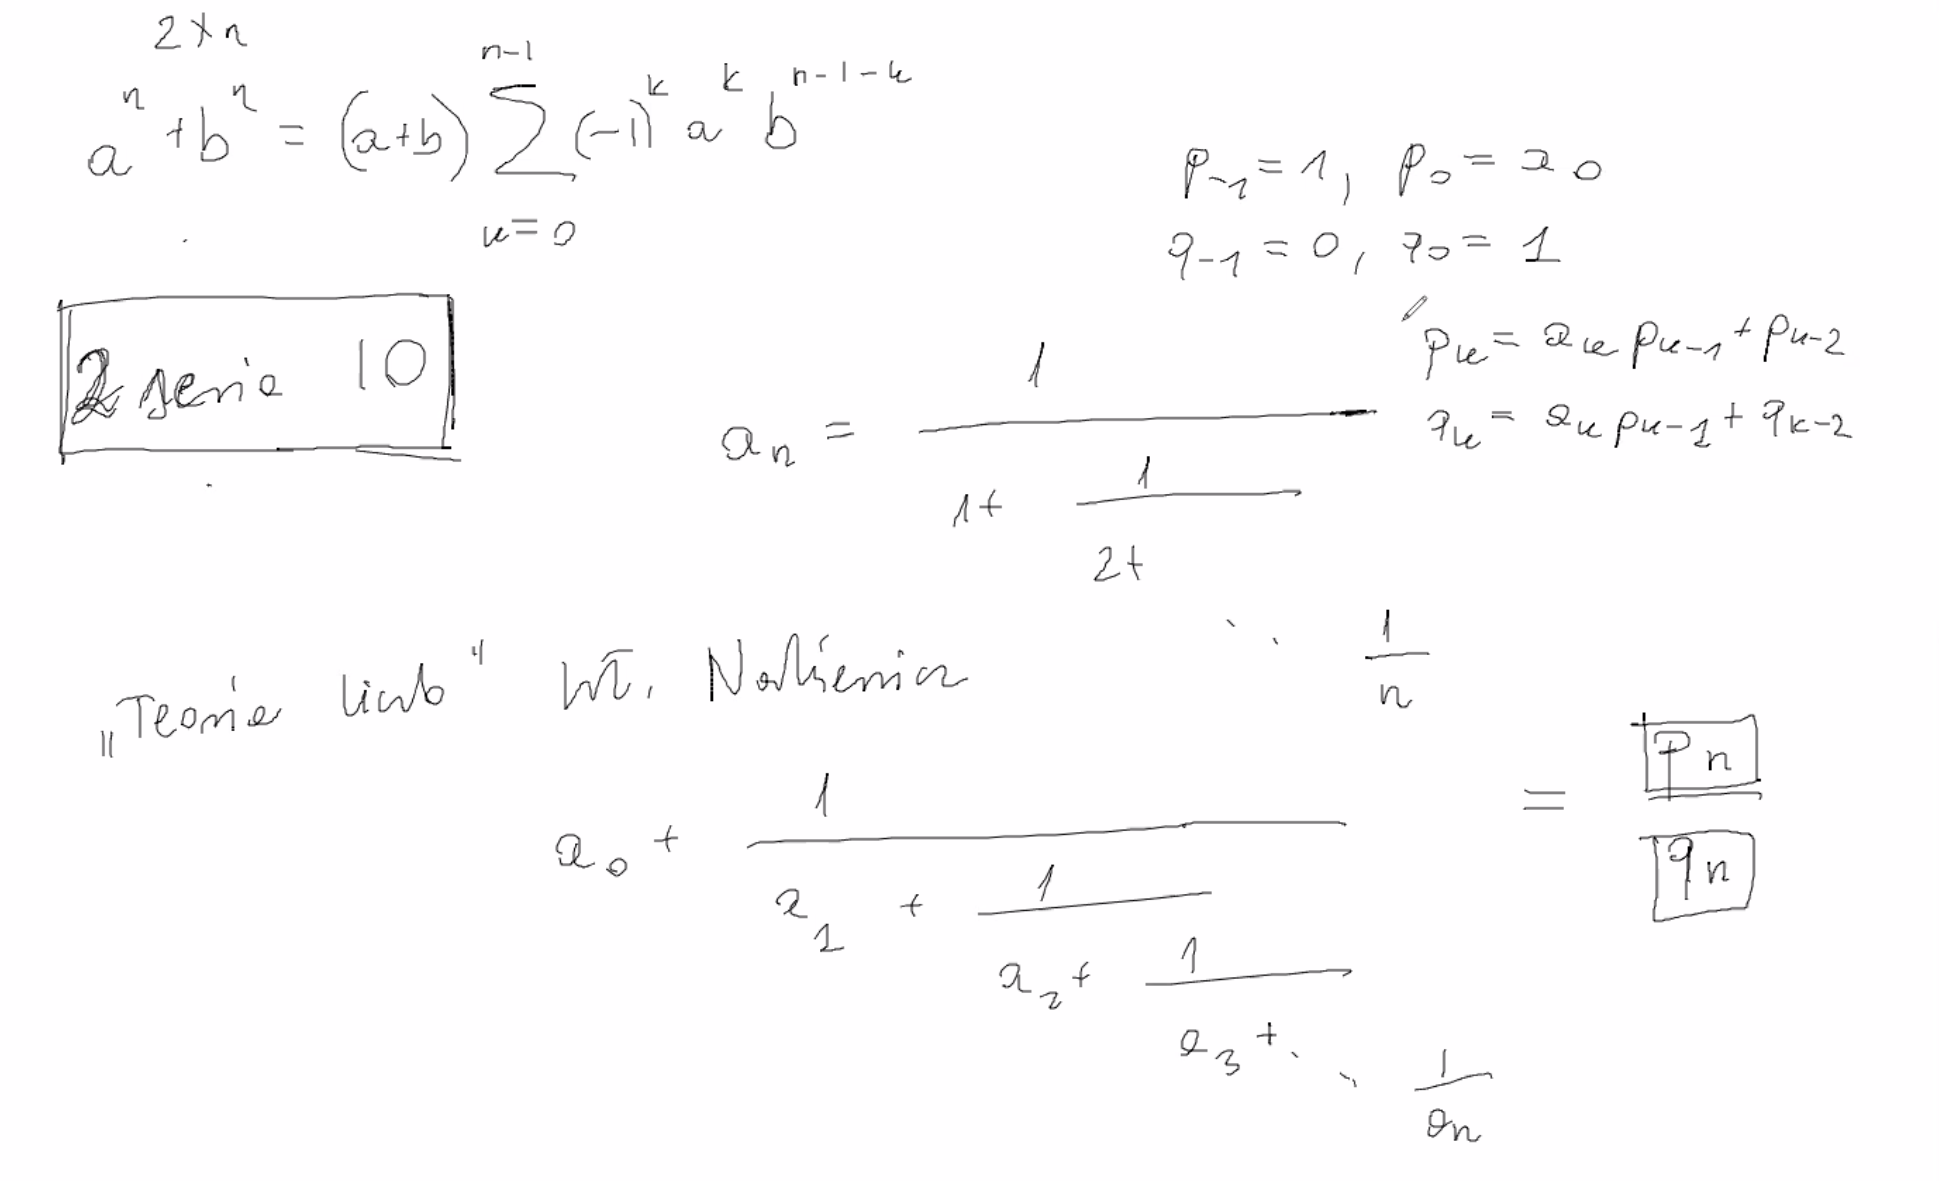 2 ∤ n
aⁿ + bⁿ = (a+b) ∑_{k=0}^{n-1} (-1)^k a^k b^{n-1-k}
p_{-1} = 1, p_0 = a_0
q_{-1} = 0, q_0 = 1
p_k = a_k p_{k-1} + p_{k-2}
q_k = a_k p_{k-1} + q_{k-2}
2 seria 10
a_n = 1/(1 + 1/(2 + ⋱ 1/n))
„Teoria liczb" Wł. Narkiewicz
a_0 + 1/(a_1 + 1/(a_2 + 1/(a_3 + ⋱ 1/a_n))) = p_n/q_n